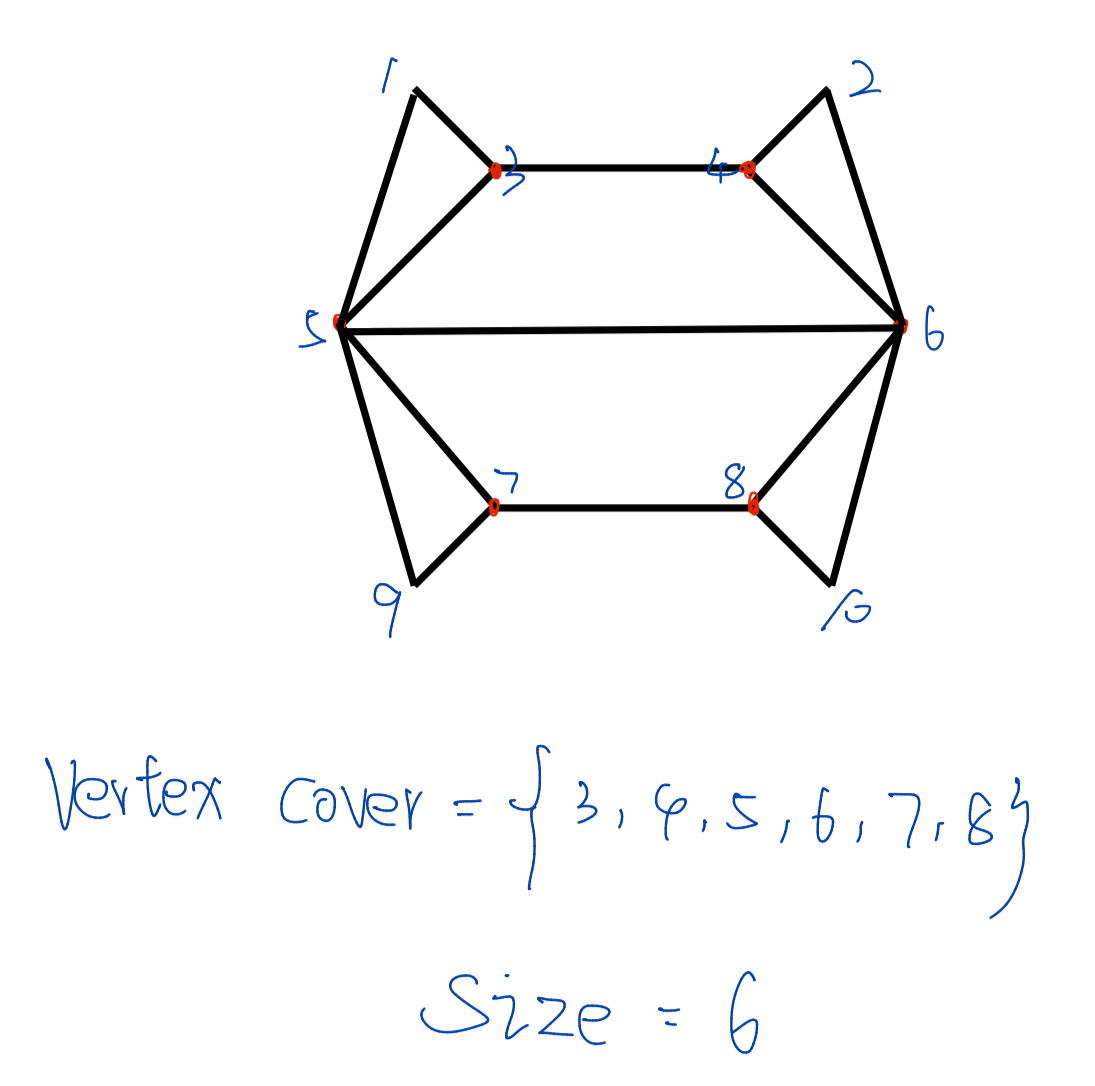 1 2
3 4
5 6
7 8
9 10
Vertex cover = {3, 4, 5, 6, 7, 8}
Size = 6